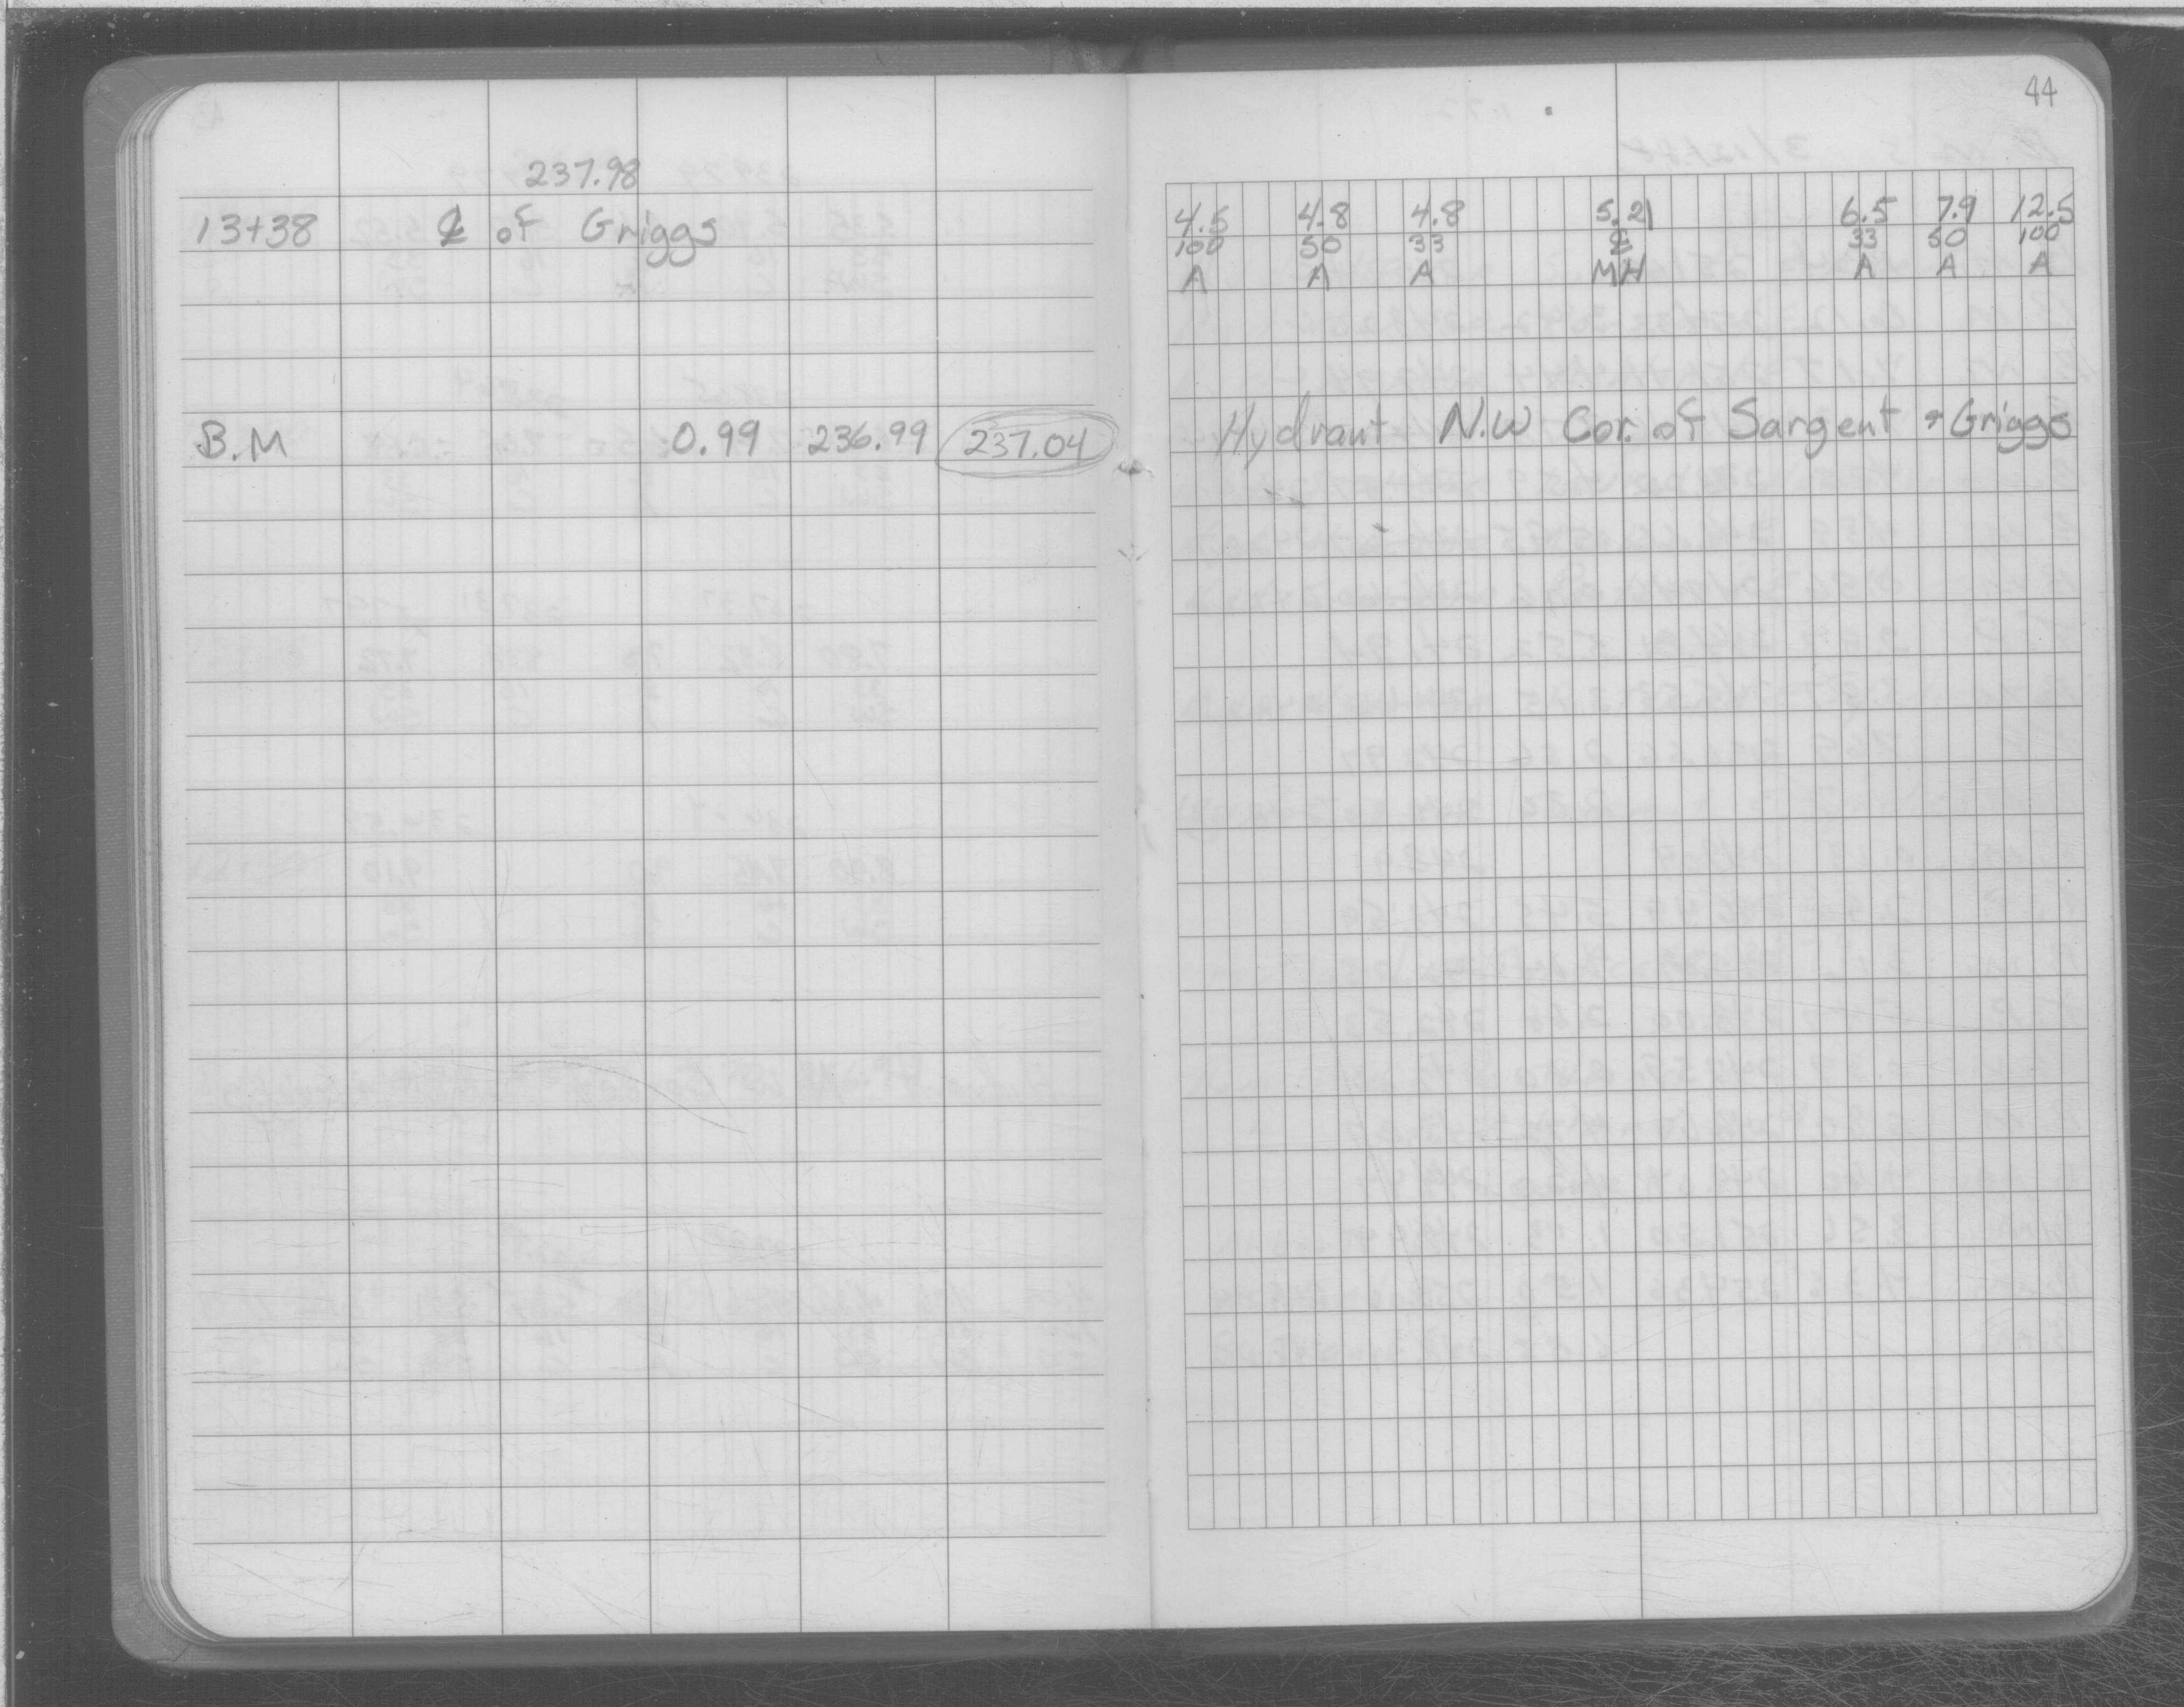 44
237.98
13+38 ℄ of Griggs
4.5 4.8 4.8 5.21 6.5 7.9 12.5
100 50 33 ℄ 33 50 100
A A A MH A A A
B.M 0.99 236.99 237.04 Hydrant N.W Cor. of Sargent & Griggs